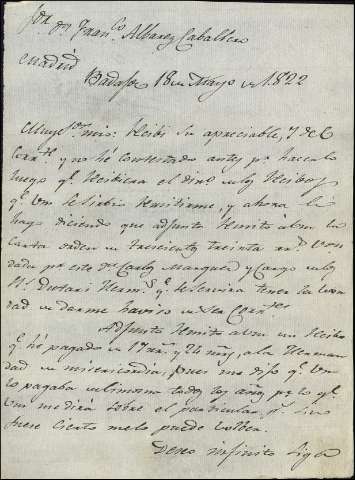 Sor. Dn. Franco. Albarez Caballero
Madrid
Badajoz 18 de Mayo de 1822
Muy Sor. mio: Recibi su apreciable, 7 del
Corrte. y no hé contestado antes pr. hacerlo
luego qe. recibiera el dinº. de los Recibos
qe. Vm. se sirbio remitirme, y ahora lo
hago diciendo que adjunta remito á Vm. la
carta orden de trescientos treinta rrs. Von
dada pr. este Dn. Carlos Marquez y Cargo de los
Hermos. y qe. se servirá tener la bon
dad de darme haviso de su
Adjunto remito á Vm. un Recibo
qe. hé pagado de 17 rrs. y 26 mrs. á la Herman
dad de misericordia, pues me dijo qe. Vm.
lo pagaba de limosna todos los años, pr. lo qe.
Vm. me dirá sobre el particular, pr. si no
fuese cierto me lo puede volber.
Deseo infinito siga